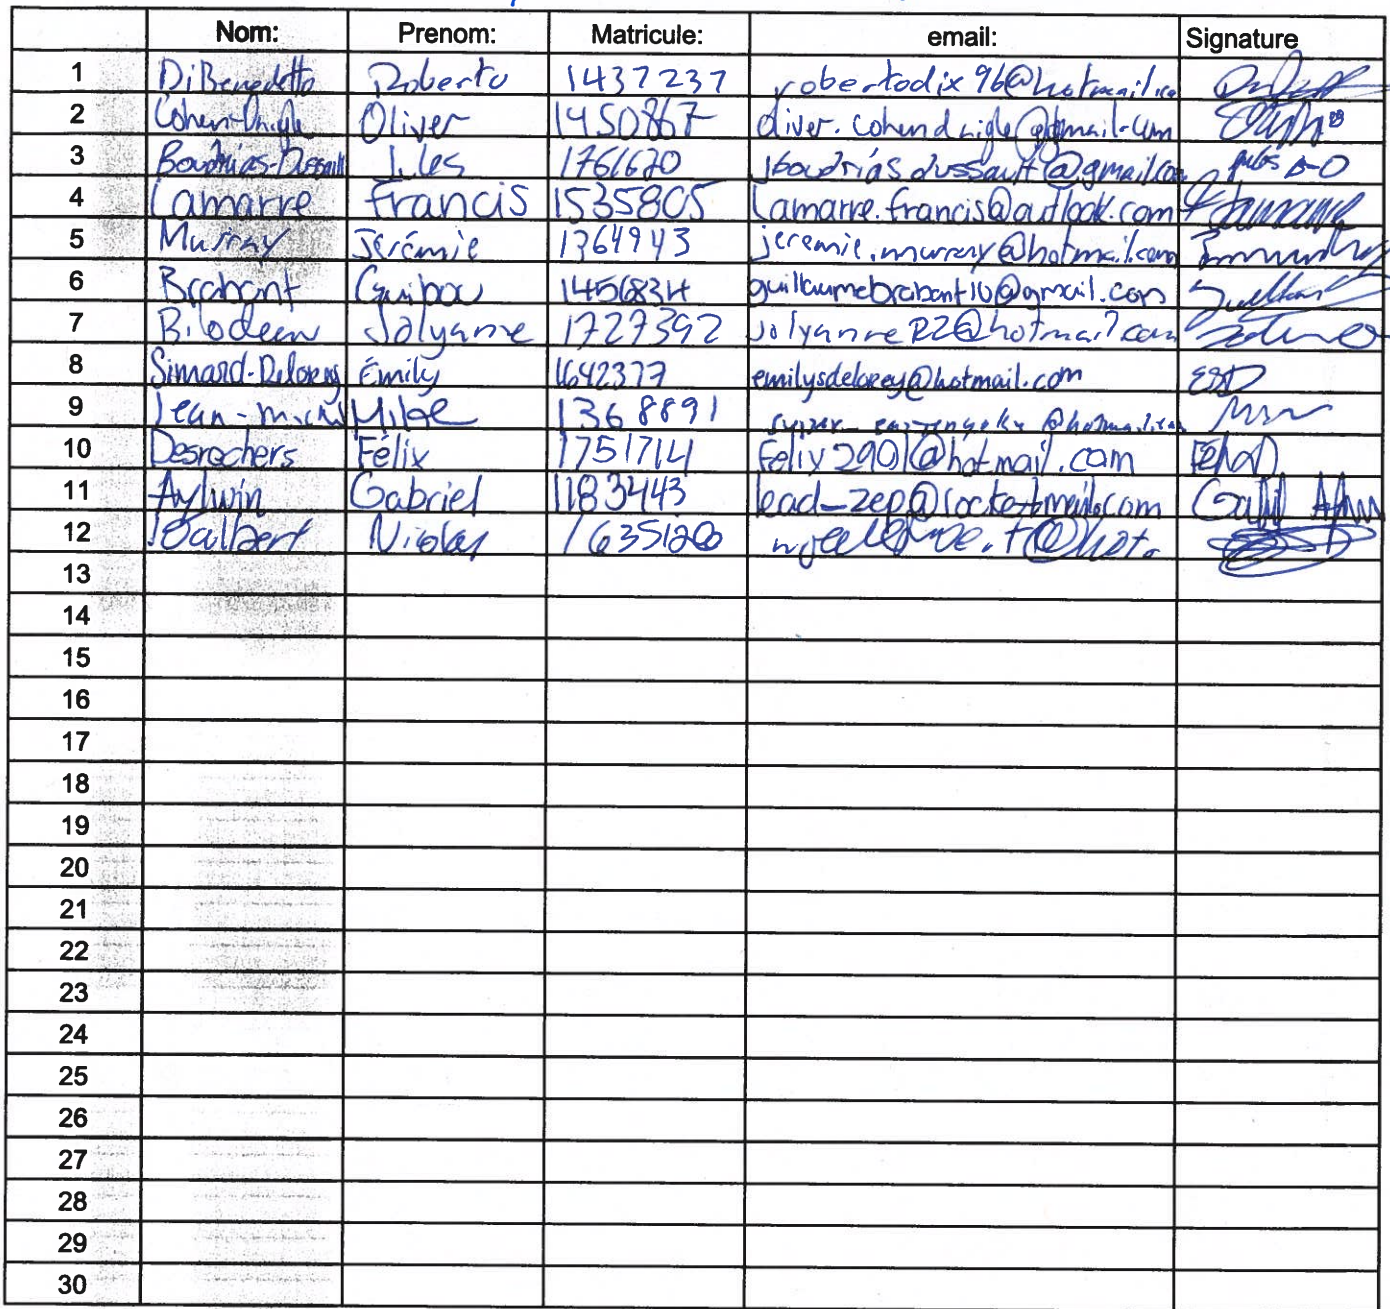 Nom: Prenom: Matricule: email: Signature
1 DiBenedetto Roberto 1437237 robertodix96@hotmail.ca
2 Cohen-Daigle Oliver 1450867 oliver.cohendaigle@gmail.com
3 Boudrias-Dussault Jules 1761620 jboudriasdussault@gmail.com Jules B-D
4 Lamarre Francis 1535805 Lamarre.francis@outlook.com
5 Murray Jérémie 1364943 jeremie.murray@hotmail.com
6 Brabant 1456834 guillaumebrabant10@gmail.com
7 Bilodeau Jolyanne 1727392 @hotmail.com
8 Simard-Delorey Émily 1642377 emilysdelorey@hotmail.com ESD
9 Jean- Mike 1368891 @hotmail.com
10 Desrochers Félix 1751714 Felix2901@hotmail.com
11 Aylwin Gabriel 1183443 lead_zep@rocketmail.com
12 Nicolas
13
14
15
16
17
18
19
20
21
22
23
24
25
26
27
28
29
30